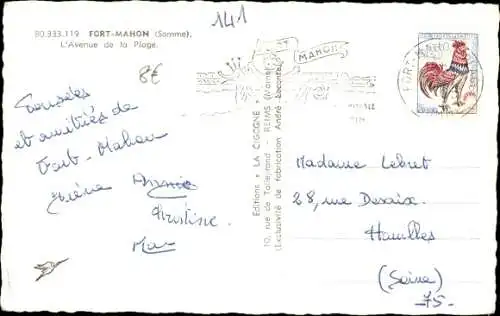 141
80.333.119 FORT-MAHON (Somme).
L'Avenue de la Plage.
8€
FORT MAHON
Pensées
et amitiés de
Fort-Mahon
Christine
Editions "LA CIGOGNE"
10, rue de Talleyrand - REIMS (Marne)
(Exclusivité de fabrication André Lecomte)
Madame Lebret
28, rue Desaix
Houilles
(Seine)
75.